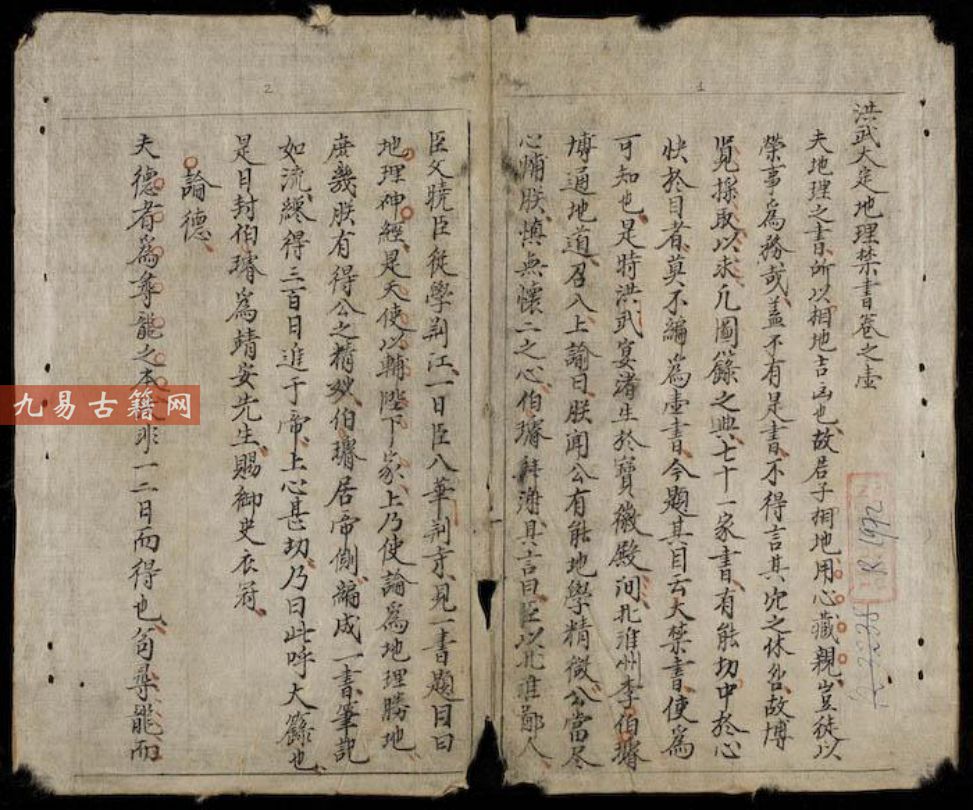 1
洪武大定地理禁書卷之壹
夫地理之書所以相地吉凶也故君子相地用心藏親豈徒以
榮事爲務哉蓋不有是書不得言其穴之休咎故博
覓採取以求凡圖籙之典七十一家書有能切中於心
快於目者莫不編爲壹書今題其目云大禁書使爲
可知也是時洪武宴渚生於寶徽殿泂北淮州李伯璿
博通地道召入上諭曰朕聞公有能地學精微公當尽
心補朕慎無懷二之心伯璿拜謝具言曰臣以北淮鄙人
2
臣父曉臣従學荆江一日臣入華荆寺見一書題目曰
地理神經是天使以輔陛下家上乃使論爲地理勝地
庶幾朕有得公之精妙伯璿居帝側編成一書筆記
如流纔得三百日進于帝上心甚切乃曰此呼大籙也
是日封伯璿爲靖安先生賜御史衣冠
論德
夫德者爲尋龍之本非一二日而得也苟尋龍而
R.1692
九易古籍网